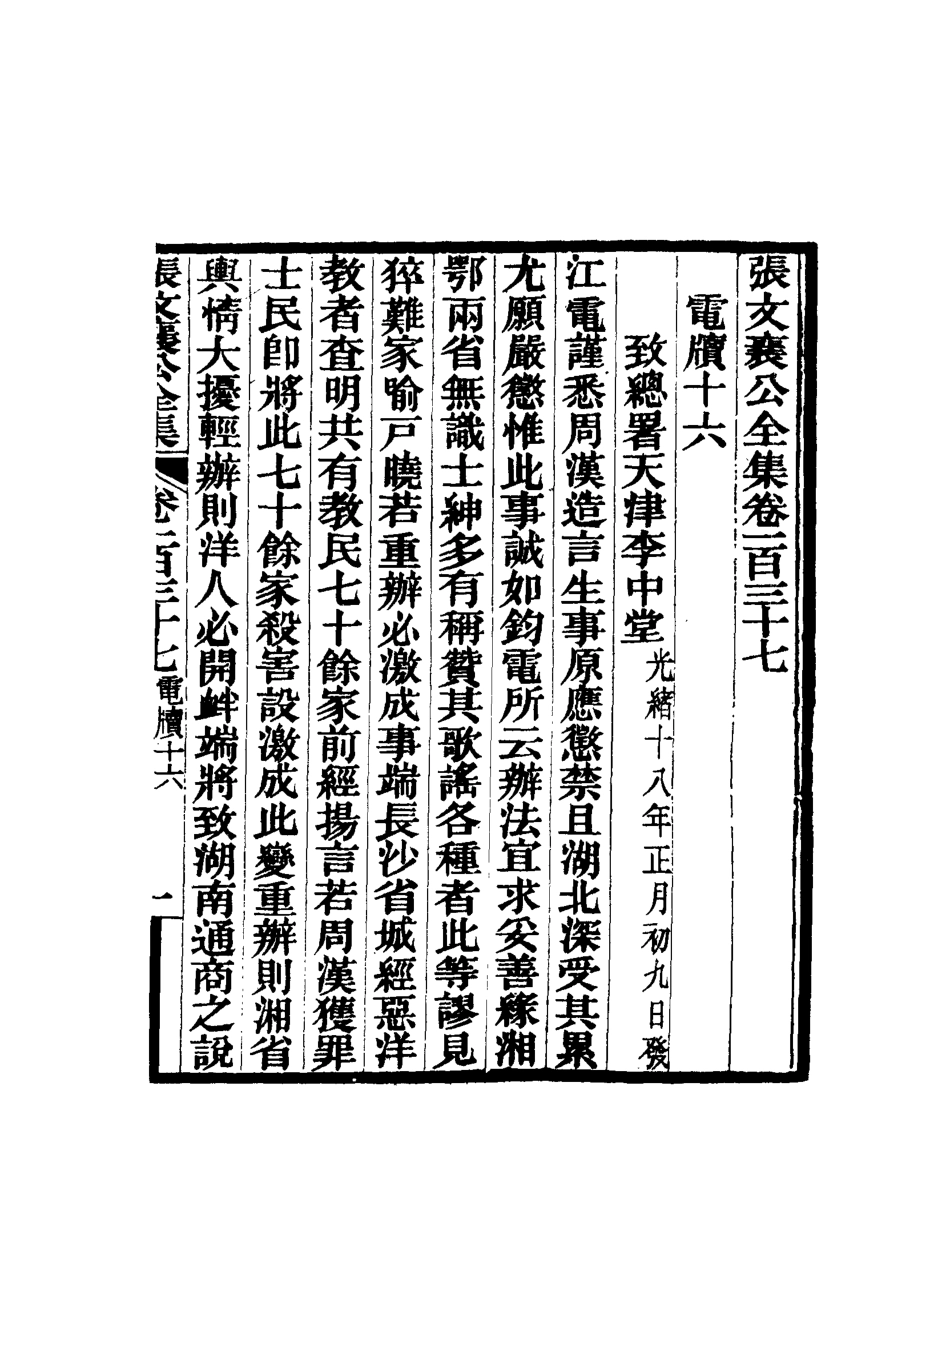 張文襄公全集卷一百三十七
電牘十六
致總署天津李中堂光緒十八年正月初九日發
江電謹悉周漢造言生事原應懲禁且湖北深受其累
尤願嚴懲惟此事誠如鈞電所云辦法宜求妥善緣湘
鄂兩省無識士紳多有稱贊其歌謠各種者此等謬見
猝難家喻戸曉若重辦必激成事端長沙省城經惡洋
教者查明共有教民七十餘家前經揚言若周漢獲罪
士民卽將此七十餘家殺害設激成此變重辦則湘省
輿情大擾輕辦則洋人必開衅端將致湖南通商之說
張文襄公全集 卷一百三十七 電牘十六 一